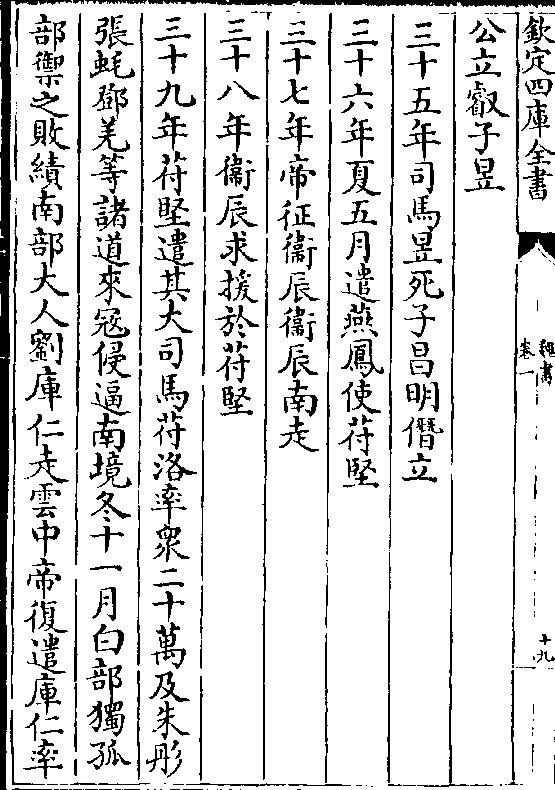 欽定四庫全書
魏書
卷一
十九
公立叡子昱
三十五年司馬昱死子昌明僭立
三十六年夏五月遣燕鳳使苻堅
三十七年帝征衞辰衞辰南走
三十八年衞辰求援於苻堅
三十九年苻堅遣其大司馬苻洛率衆二十萬及朱彤
張蚝鄧羌等諸道來寇侵逼南境冬十一月白部獨孤
部禦之敗績南部大人劉庫仁走雲中帝復遣庫仁率